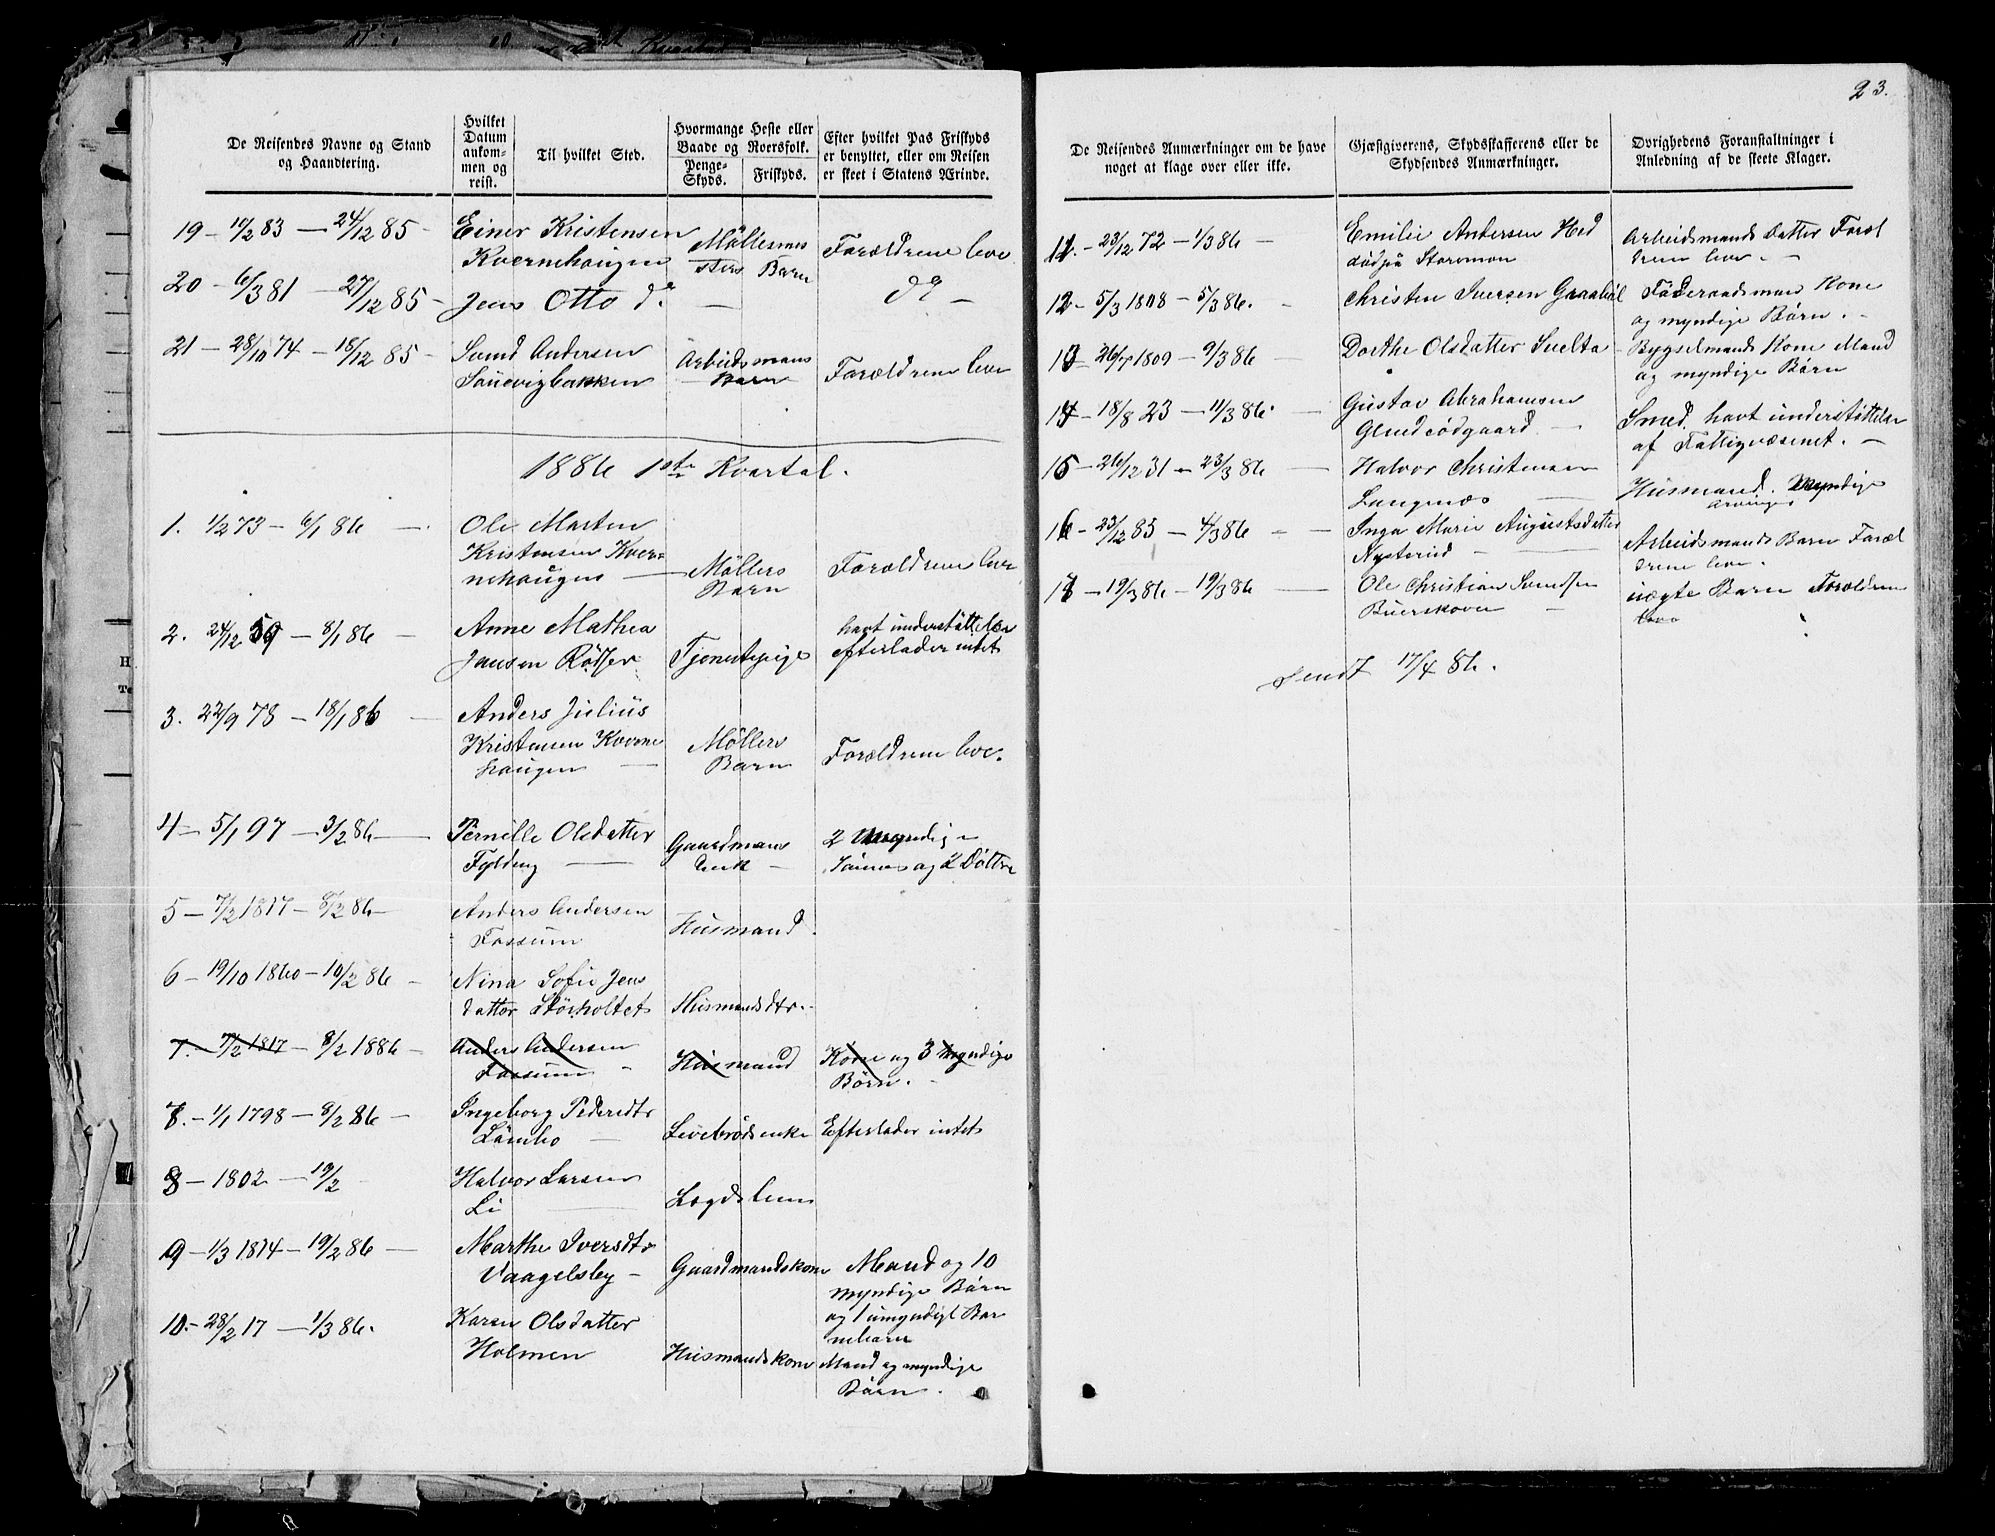 23.
De Reisendes Navne og Stand
og Haandtering.
Hvilket
Datum
ankom-
men og
reist.
Til hvilket Sted.
Hvormange Heste eller
Baade og Roersfolk.
Penge-
Skyds.
Friskyds.
Efter hvilket Pas Friskyds
er benyttet, eller om Reisen
er skeet i Statens Ærinde.
19 - 11/2 83 - 24/12 85 - Einer Kristensen
Kvernehaugen
Møllesmes
sters Barn
Forældrene leve
20 - 6/3 81 - 27/12 85 - Jens Otto do - do -
21 - 28/10 74 - 18/12 85 - Svend Andersen
Sauevigbakken
Arbeidsmans
Barn
Forældrene leve
1886 1ste Kvartal.
1. 1/2 73 - 6/1 86 - Ole Marten
Kristensen Kver=
nehaugen -
Møllers
Barn
Forældrene leve
2. 24/12 59 - 8/1 86 - Anne Mathea
Jansen
Tjenestepige
havt understøttelse
efterlader intet
3. 22/9 78 - 18/1 86 - Anders Julius
Kristensen Kverne
haugen -
Møllers
Barn
Forældrene leve.
4 - 5/1 97 - 3/2 86 - Pernille Olsdatter
Fylding -
Gaardmans
Enke -
2 Myndige
Sønner og 2 Døttre
5 - 7/2 1817 - 8/2 86 - Anders Andersen
Fossum
Husmand.
6 - 19/10 1860 - 10/2 86 - Nina Sofie Jens
datter Størholtet
Husmandsdtr.
7. - 7/2 1817 - 8/2 1886 - Anders Andersen
Fossum -
Husmand
Kone og 3 Myndige
Børn. -
7. - 1/1 1798 - 8/2 86 - Ingeborg Pedersdtr
-
Levebrødsenke
Efterlader intet
8 - 1802 - 19/2 Halvor Larsen
Li -
Lægdslem
9 - 1/3 1814 - 19/2 86 - Marthe Iversdtr
Vaagelsby -
Gaardmandskone
Mand og 10
myndige Børn
og 1 umyndigt Bar
nebarn
10. - 28/2 17 - 1/3 86. Karen Olsdatter
Holmen
Husmandskone
Mand og myndige
Børn.
De Reisendes Anmærkninger om de have
noget at klage over eller ikke.
Gjæstgiverens, Skydsskafferens eller de
Skydsendes Anmærkninger.
Øvrighedens Foranstaltninger i
Anledning af de skeete Klager.
11. - 23/12 72 - 1/3 86 - Emilie Andersen Hed
død paa Storemon
Arbeidsmands Datter Foræl
drene leve. -
12 - 5/3 1808 - 5/3 86. - Christen Iversen
Føderaadsmand Kone
og myndige Børn. -
13 - 26/7 1809 - 9/3 86 - Dorthe Olsdatter Svelta
Bygselmands Kone Mand
og myndige Børn
14 - 18/8 23 - 11/3 86. - Gustav Abrahamsen
-
Smed. havt understøttelse
af Fattigvæsenet. -
15 - 26/12 31 - 23/3 86 - Halvor Christensen
Langenæs -
Husmand. Myndige
Arvinger
16 - 23/12 83 - 4/3 86 - Inga Marie Augustsdatter
Nysterud -
Arbeidsmands Barn Foræl
drene leve.
17 - 19/3 86 - 19/3 86 - Ole Christian Svendsen
Buerskoven -
uægte Barn Forældrene
leve
Sendt 17/4 86.